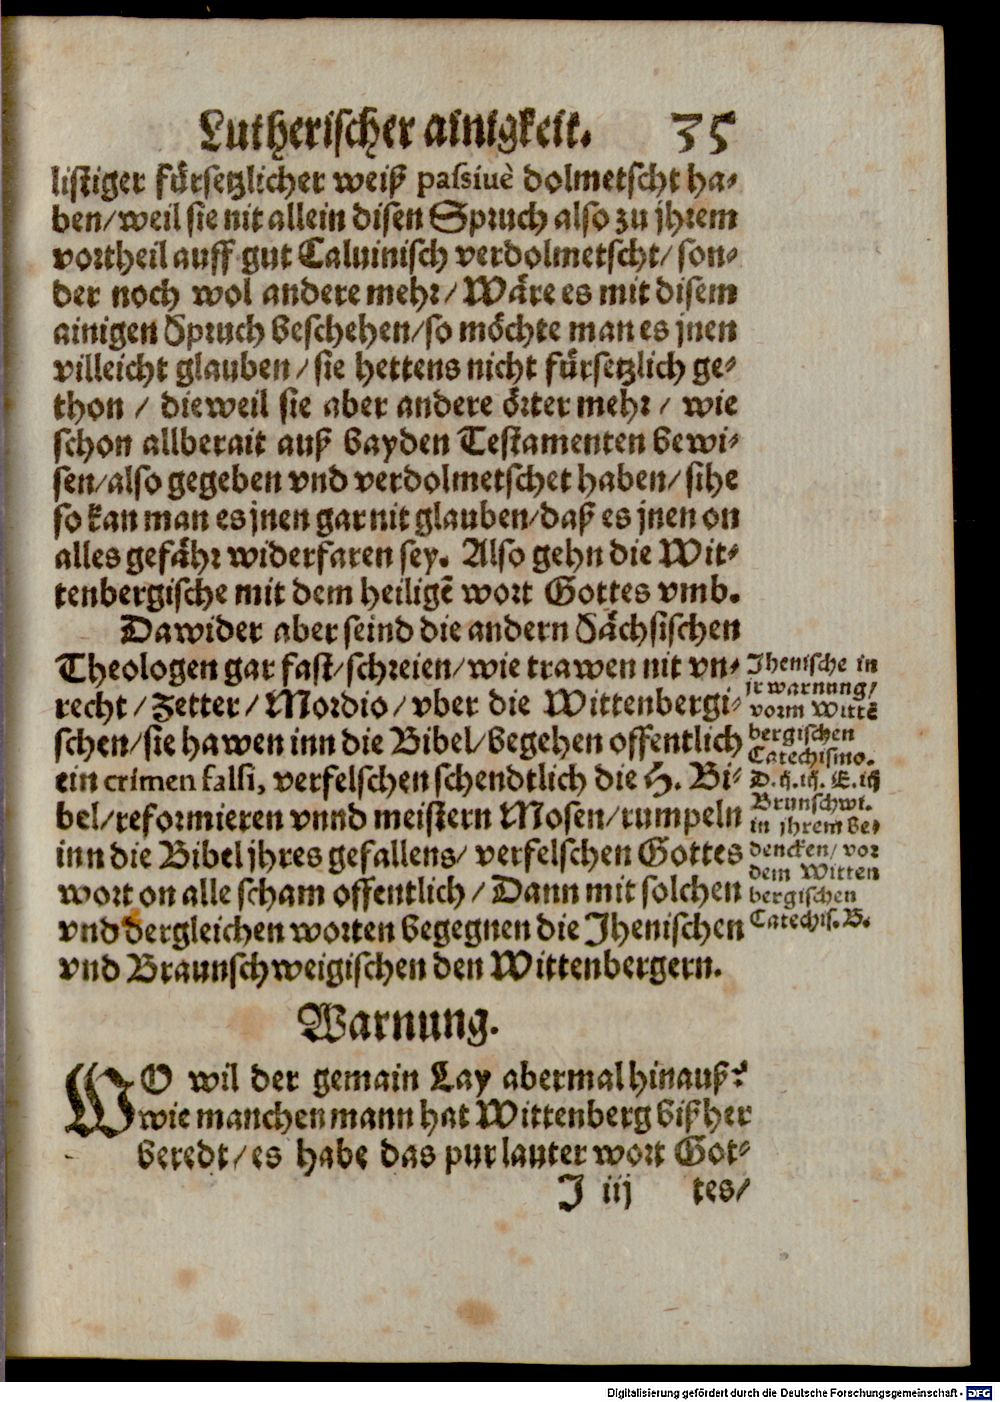 Lutherischer ainigkeit. 35
listiger fürsetzlicher weiß passiuè dolmetscht ha-
ben/weil sie nit allein disen Spruch also zu jhrem
vortheil auff gut Caluinisch verdolmetscht/ son-
der noch wol andere mehr/ Wäre es mit disem
ainigen Spruch beschehen/so möchte man es jnen
villeicht glauben/ sie hettens nicht fürsetzlich ge-
thon / dieweil sie aber andere örter mehr / wie
schon allberait auß bayden Testamenten bewi-
sen/also gegeben vnd verdolmetschet haben/ sihe
so kan man es jnen gar nit glauben/daß es jnen on
alles gefähr widerfaren sey. Also gehn die Wit-
tenbergische mit dem heiligẽ wort Gottes vmb.
Dawider aber seind die andern Sächsischen
Theologen gar fast/schreien/wie trawen nit vn-
recht/ Zetter/ Mordio/ vber die Wittenbergi-
schen/sie hawen inn die Bibel/begehen offentlich
ein crimen falsi, verfelschen schendtlich die H. Bi-
bel/reformieren vnnd meistern Mosen/rumpeln
inn die Bibel jhres gefallens/ verfelschen Gottes
wort on alle scham offentlich/ Dann mit solchen
vnd dergleichen worten begegnen die Jhenischen
vnd Braunschweigischen den Wittenbergern.
Jhenische in
jr warnung/
vorm Wittẽ
bergischen
Catechismo.
D. ij. iij. E. iij
Brunschwi.
in jhrem be-
dencken/ vor
dem Witten
bergischen
Catechis. B.
Warnung.
WO wil der gemain Lay abermal hinauß?
wie manchen mann hat Wittenberg bißher
beredt/es habe das pur lauter wort Got-
J iij tes/
Digitalisierung gefördert durch die Deutsche Forschungsgemeinschaft - DFG